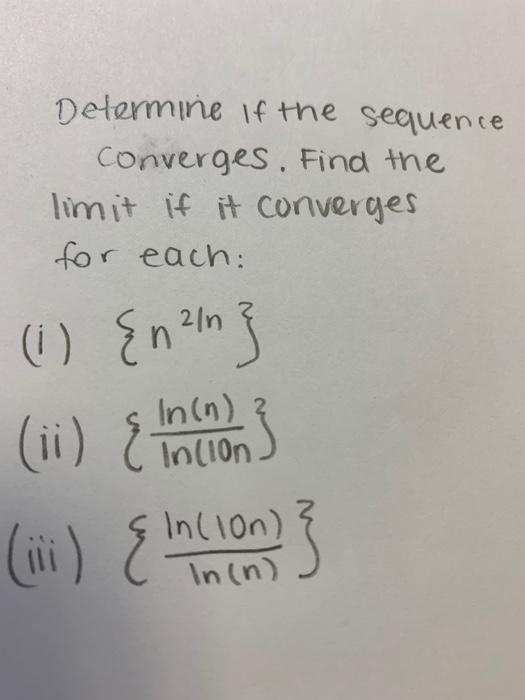 Determine if the sequence
converges. Find the
limit if it converges
for each:
(i) {n^2/n}
(ii) {ln(n)/ln(10n}
(iii) {ln(10n)/ln(n)}